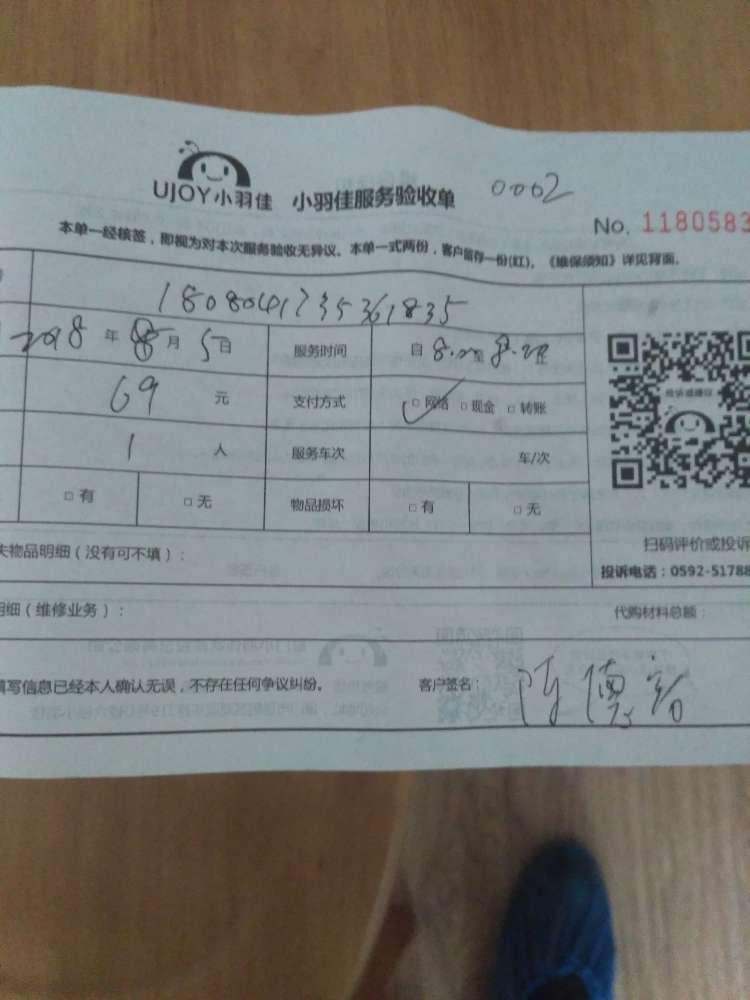 UJOY小羽佳 小羽佳服务验收单 0002
No. 1180583
本单一经核签，即视为对本次服务验收无异议。本单一式两份，客户留存一份(红)。《维保须知》详见背面。
1808041735361835
2018 年 8 月 5 日 服务时间 自 8:00 至 8:20
69 元 支付方式 □ 网络 □ 现金 □ 转账
1 人 服务车次 车/次
□ 有 □ 无 物品损坏 □ 有 □ 无
投诉或建议
扫码评价或投诉
失物品明细（没有可不填）：
投诉电话：0592-51788
明细（维修业务）： 代购材料总额：
填写信息已经本人确认无误，不存在任何争议纠纷。 客户签名：